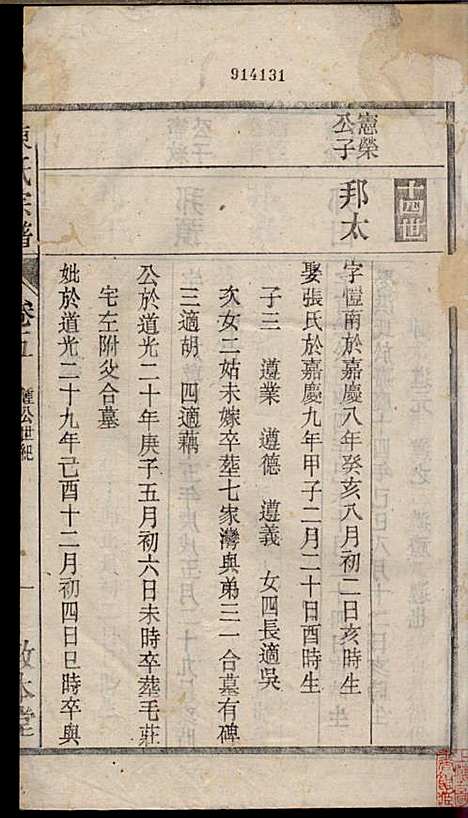 914131
十四世
憲榮
公子
邦太
字愷南於嘉慶八年癸亥八月初二日亥時生
娶張氏於嘉慶九年甲子二月二十日酉時生
子三 遵業 遵德 遵義 女四長適吳
次女二姑未嫁卒塟七家灣與弟三一合墓有碑
三適胡 四適藕
公於道光二十年庚子五月初六日未時卒塟毛莊
宅左附父合墓
妣於道光二十九年己酉十二月初四日巳時卒與
氏宗譜
卷五 公世紀 一 敦本堂